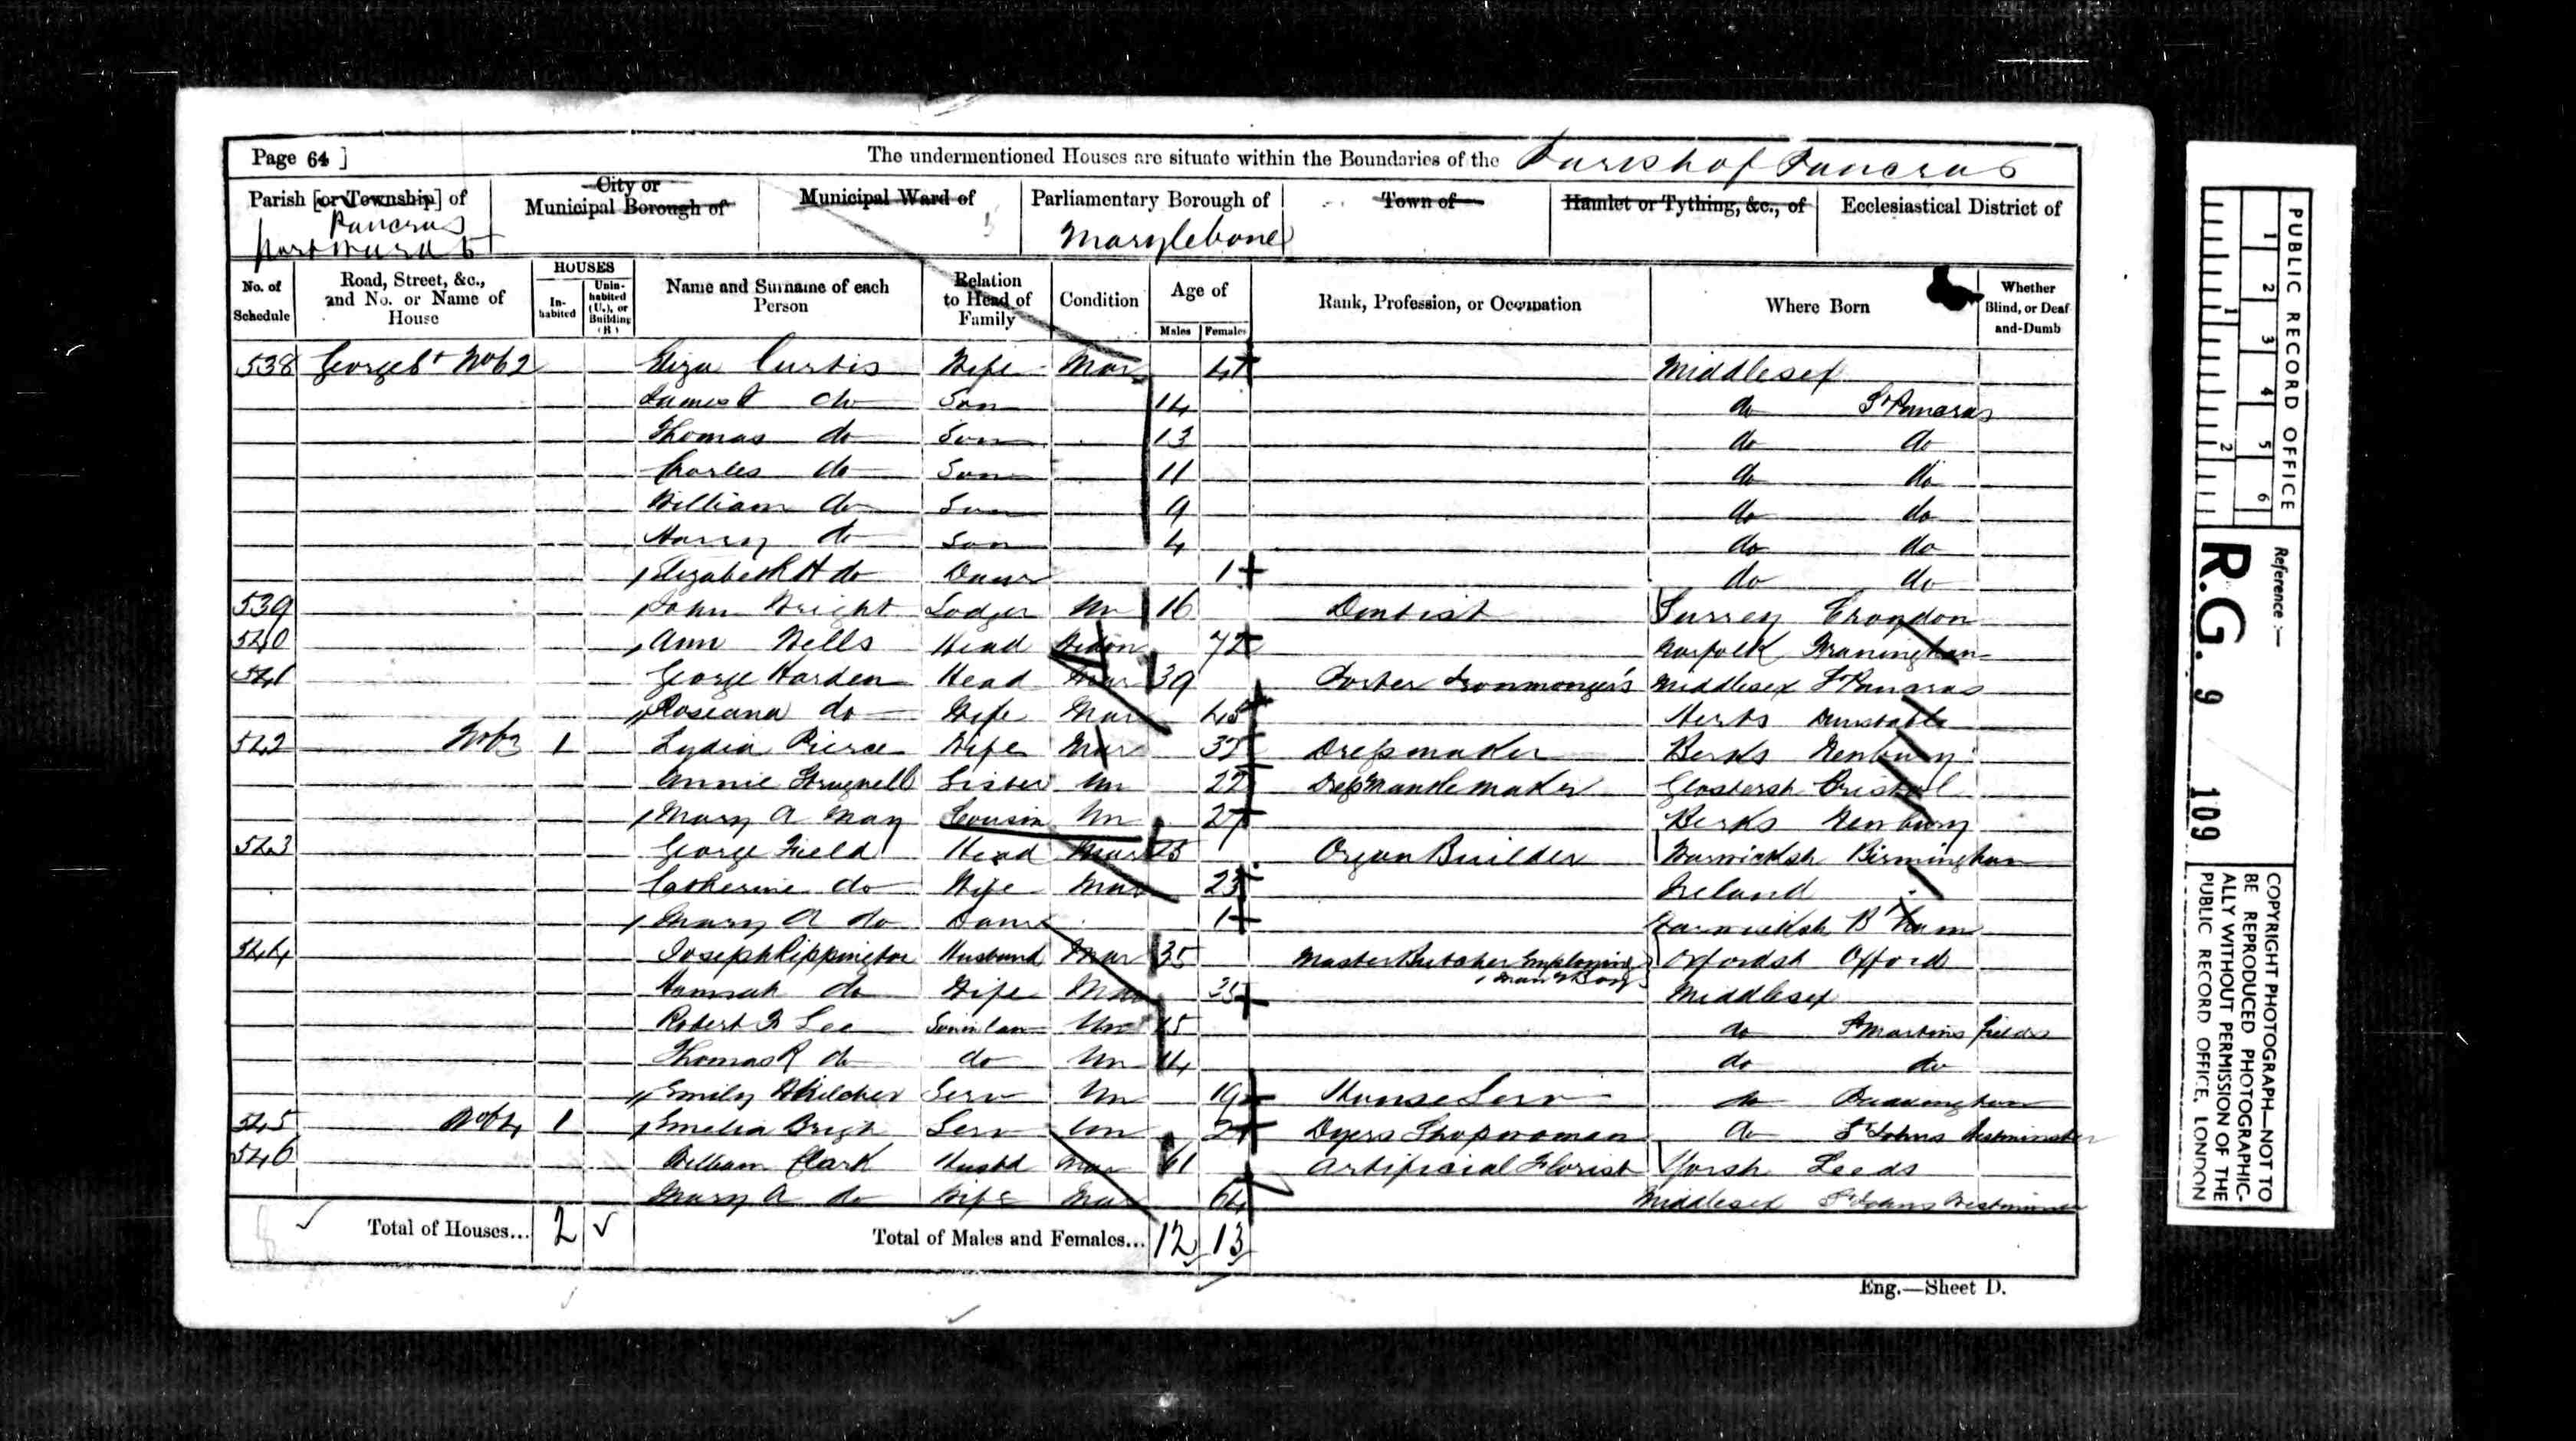 Page 64 ]
The undermentioned Houses are situate within the Boundaries of the Parish of Pancras
Parish [or Township] of
Pancras
City or
Municipal Borough of
Municipal Ward of
Parliamentary Borough of
Marylebone
Town of
Hamlet or Tything, &c., of
Ecclesiastical District of
No. of Schedule
Road, Street, &c., and No. or Name of House
HOUSES
In-habited
Unin-habited (U.), or Building (B.)
Name and Surname of each Person
Relation to Head of Family
Condition
Age of
Males Females
Rank, Profession, or Occupation
Where Born
Whether Blind, or Deaf-and-Dumb
538 George St No 62 Eliza Curtis Wife Mar Middlesex
James do Son 14 do St Pancras
Thomas do Son 13 do do
Charles do Son 11 do do
William do Son 9 do do
Harry do Son 4 do do
Elizabeth H do Daur 1 do do
539 John Wright Lodger Un 16 Dentist Surrey Croydon
540 Ann Wells Head Widow 72 Norfolk
541 George Harden Head Mar 39 Porter Ironmonger's Middlesex St Pancras
Roseana do Wife Mar 45 Herts Dunstable
542 No 63 1 Lydia Pierce Wife Mar 35 Dressmaker Berks Newbury
Annie Strugnell Sister Un 22 Dress Mantle maker Glostersh Bristol
Mary A May Cousin Un 27 Berks Newbury
543 George Field Head Mar Organ Builder Warwicksh Birmingham
Catherine do Wife Mar 23 Ireland
Mary A do Daur 1 Warwicksh B'ham
544 Joseph Rippington Husband Mar 35 Master Butcher Employing 1 Man & Boy Oxfordsh Oxford
Hannah do Wife Mar Middlesex
Robert Lee Son in law Un 15 do St Martins fields
Thomas R do do Un 14 do do
Emily Serv Un 19 House Serv do Paddington
545 No 64 1 Emelia Serv Un Dyers Shopwoman do St Johns Westminster
546 William Clark Husbd Mar 61 Artificial Florist Yorsh Leeds
Mary A do Wife Mar 64 Middlesex St Johns Westminster
Total of Houses... 2
Total of Males and Females... 12 13
Eng.—Sheet D.
PUBLIC RECORD OFFICE
1 2 3 4 5 6
1 2
Reference :—
R.G. 9 109
COPYRIGHT PHOTOGRAPH—NOT TO BE REPRODUCED PHOTOGRAPHIC-
ALLY WITHOUT PERMISSION OF THE
PUBLIC RECORD OFFICE, LONDON